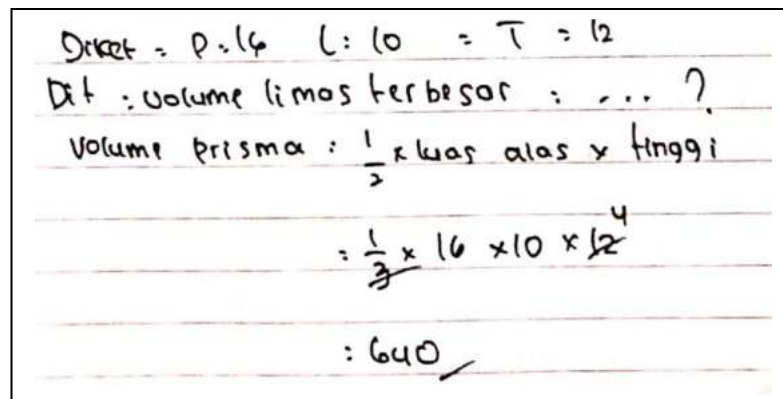 Diket = P : 16 L : 10 = T = 12
Dit : volume limas terbesar : .... ?
Volume prisma : 1/2 x luas alas x tinggi
: 1/3 x 16 x 10 x 12 4
: 640